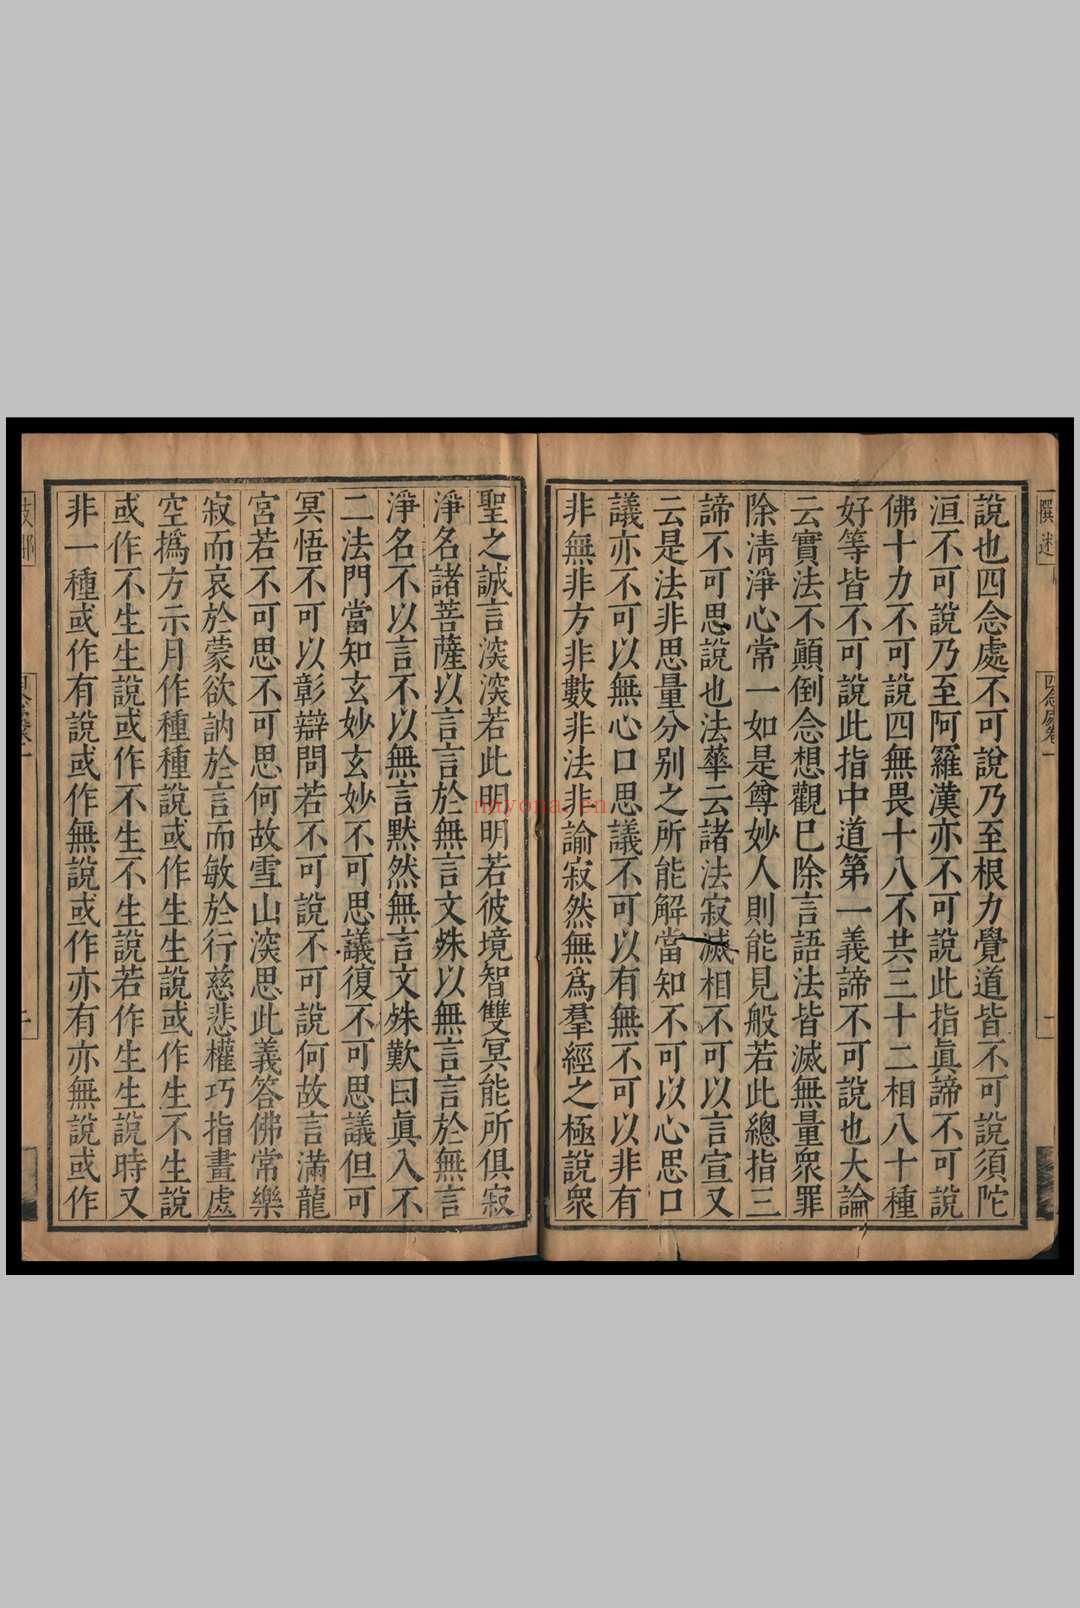 撰述
四念處卷一
一
說也四念處不可說乃至根力覺道皆不可說須陀
洹不可說乃至阿羅漢亦不可說此指眞諦不可說
佛十力不可說四無畏十八不共三十二相八十種
好等皆不可說此指中道第一義諦不可說也大論
云實法不顚倒念想觀已除言語法皆滅無量衆罪
除淸淨心常一如是尊妙人則能見般若此總指三
諦不可思說也法華云諸法寂滅相不可以言宣又
云是法非思量分別之所能解當知不可以心思口
議亦不可以無心口思議不可以有無不可以非有
非無非方非數非法非諭寂然無爲羣經之極說衆
聖之誠言深深若此明明若彼境智雙冥能所俱寂
淨名諸菩薩以言言於無言文殊以無言言於無言
淨名不以言不以無言默然無言文殊歎曰眞入不
二法門當知玄妙玄妙不可思議復不可思議但可
冥悟不可以彰辯問若不可說不可說何故言滿龍
宮若不可思不可思何故雪山深思此義答佛常樂
寂而哀於蒙欲訥於言而敏於行慈悲權巧指畫處
空撝方示月作種種說或作生生說或作生不生說
或作不生生說或作不生不生說若作生生說時又
非一種或作有說或作無說或作亦有亦無說或作
nmyona.cn